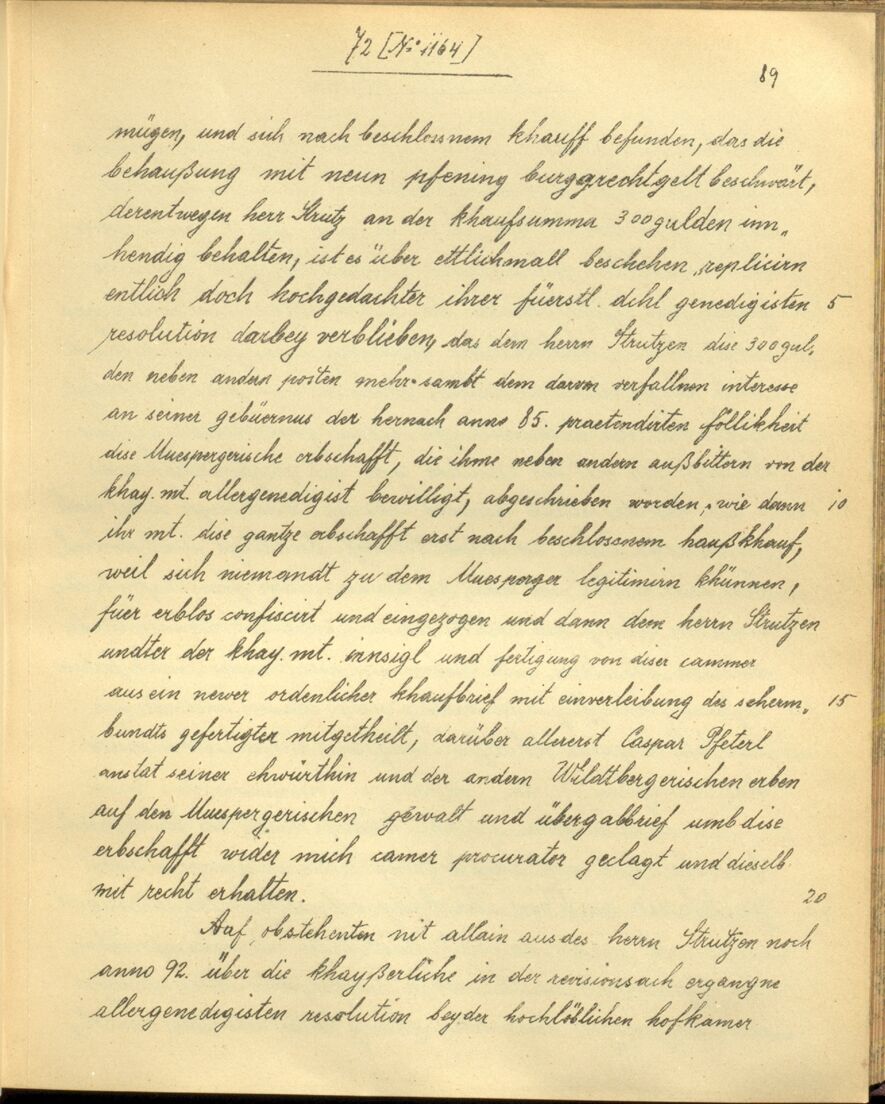 72 [No 1164]
89
mügen, und sich nach beschlossnem khauff befunden, das die
behaußung mit neun pfening burggrechtgelt beschwärt,
derentwegen herr Strutz an der khaufsumma 300 gulden inn„
hendig behalten, ist es über ettlichmall beschehen replicirn
entlich doch hochgedachter ihrer füerstl. dchl genedigisten 5
resolution darbey verblieben, das dem herrn Strutzen dise 300 gul„
den neben andern posten mehr sambt dem darvon verfallnen interesse
an seiner gebüernus der hernach anno 85. praetendirten föllikheit
dise Muespergerische erbschafft, die ihme neben andern außbittern von der
khay. mt. allergenedigist bewilligt, abgeschrieben worden, wie dann 10
ihr mt. dise gantze erbschafft erst nach beschlossnem haußkhauf,
weil sich niemandt zu dem Muesperger legitimirn khünnen,
füer erblos confiscirt und eingezogen und dann dem herrn Strutzen
undter der khay. mt. innsigl und fertigung von diser cammer
aus ein newer ordenlicher khaufbrief mit einverleibung des scherm„ 15
bundts gefertigter mitgetheilt, darüber allererst Caspar Pfeterl
anstat seiner ehwürthin und der andern Wildtbergerischen erben
auf den Muespergerischen gewalt und übergabbrief umb dise
erbschafft wider mich camer procurator geclagt und dieselb
mit recht erhalten. 20
Auf obstehenten nit allain aus des herrn Strutzen noch
anno 92. über die khayßerliche in der revisionsach ergangne
allergenedigisten resolution bey der hochlöblichen hofkamer